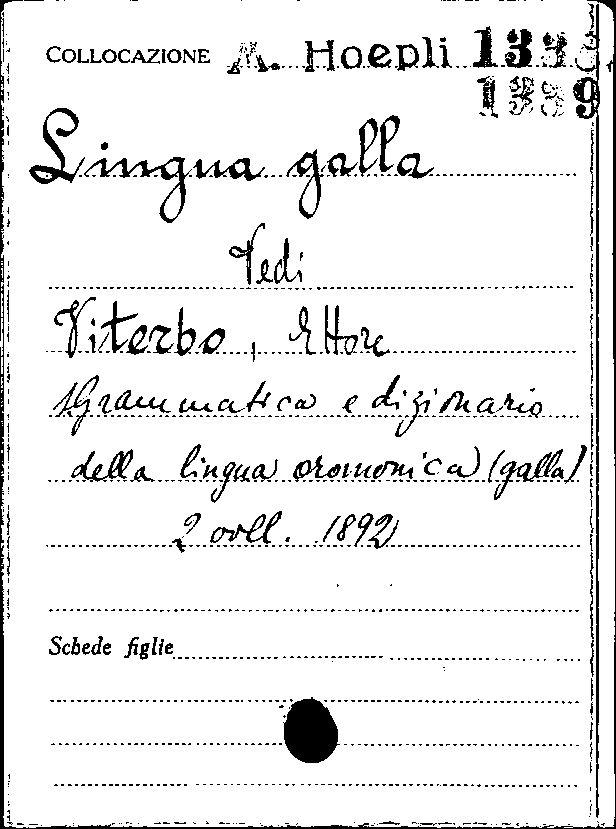 COLLOCAZIONE M. Hoepli 1338.
1339
Lingua galla
Vedi
Viterbo, Ettore
Grammatica e dizionario
della lingua oromonica (galla)
2 voll. 1892
Schede figlie